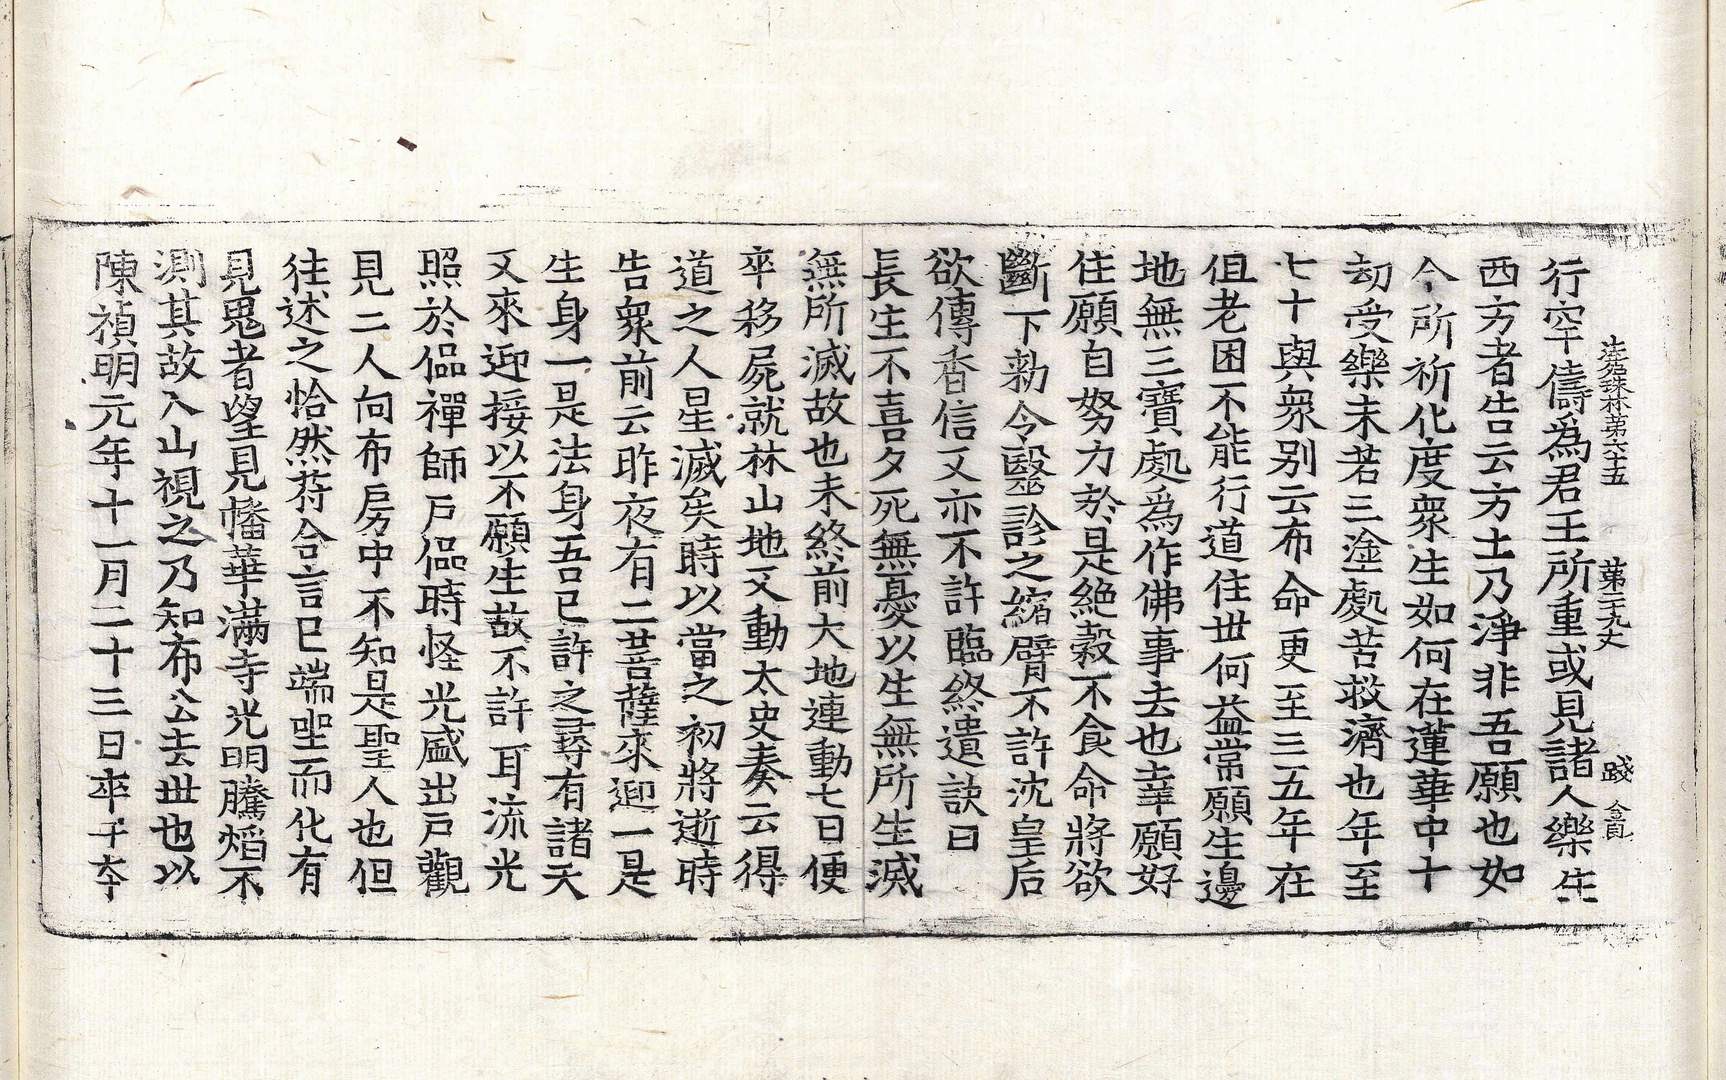 法苑珠林第六十五 第二十九丈 踐 僉員
行罕儔爲君王所重或見諸人樂生
西方者告云方土乃淨非吾願也如
今所祈化度衆生如何在蓮華中十
劫受樂未若三塗處苦救濟也年至
七十與衆别云布命更至三五年在
但老困不能行道住世何益常願生邊
地無三寶處爲作佛事去也幸願好
住願自努力於是絶穀不食命將欲
斷下勑令醫診之縮臂不許沈皇后
欲傳香信又亦不許臨終遺訣曰
長生不喜夕死無憂以生無所生滅
無所滅故也未終前大地連動七日便
卒移屍就林山地又動太史奏云得
道之人星滅矣時以當之初將逝時
告衆前云昨夜有二菩薩來迎一是
生身一是法身吾已許之尋有諸天
又來迎接以不願生故不許耳流光
照於偘禪師戸偘時怪光盛出戸觀
見二人向布房中不知是聖人也但
往述之恰然符合言已端坐而化有
見鬼者望見幡華滿寺光明騰焰不
測其故入山視之乃知布公去世也以
陳禎明元年十一月二十三日卒于本